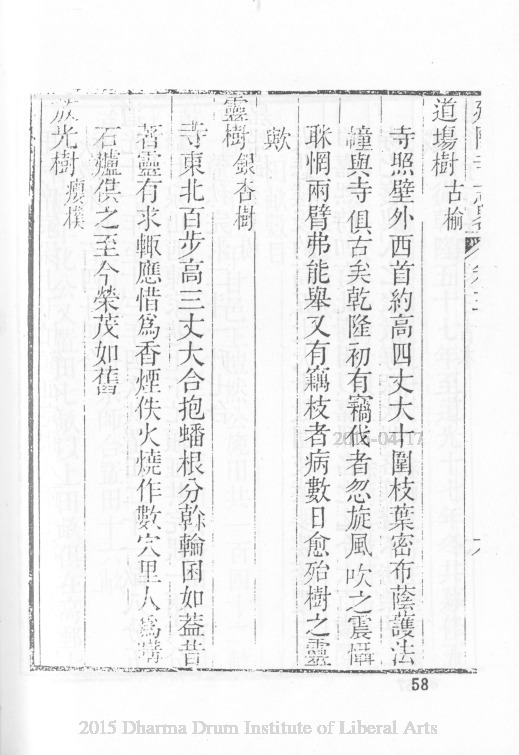 寺志畧 卷三
道塲樹 古榆
寺照壁外西首約高四丈大十圍枝葉密布蔭護法
幢與寺俱古矣乾隆初有竊伐者忽旋風吹之震懾
眯惘兩臂弗能舉又有竊枝者病數日愈殆樹之靈
歟
靈樹 銀杏樹
寺東北百步高三丈大合抱蟠根分榦輪囷如葢昔
著靈有求輒應惜爲香煙佚火燒作數穴里人爲搆
石爐供之至今榮茂如舊
放光樹 癭樸
58
2015-04-17
2015 Dharma Drum Institute of Liberal Arts